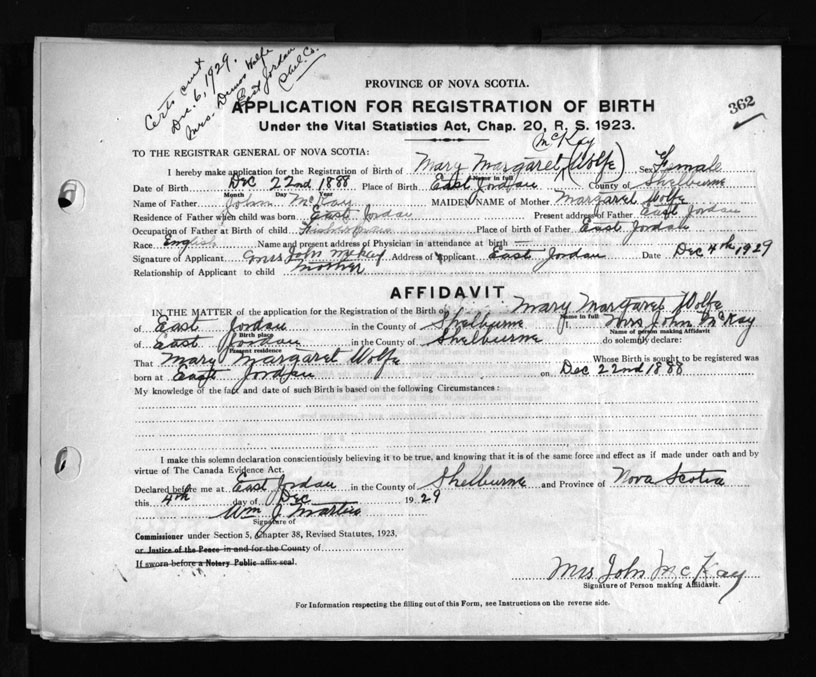 Certs sent
Dec. 6, 1929.
Mrs. Wolfe
East Jordan
Shel. Co.
PROVINCE OF NOVA SCOTIA.
APPLICATION FOR REGISTRATION OF BIRTH
362
Under the Vital Statistics Act, Chap. 20, R. S. 1923.
McKay
TO THE REGISTRAR GENERAL OF NOVA SCOTIA:
I hereby make application for the Registration of Birth of Mary Margaret (Wolfe) Sex Female
Name in full
Date of Birth Dec 22nd 1888 Place of Birth East Jordan County of Shelburne
Month Day Year
Name of Father John McKay MAIDEN NAME of Mother Margaret Wolfe
Residence of Father when child was born East Jordan Present address of Father East Jordan
Occupation of Father at Birth of child Place of birth of Father East Jordan
Race English Name and present address of Physician in attendance at birth —
Signature of Applicant Mrs John McKay Address of Applicant East Jordan Date Dec 4th 1929
Relationship of Applicant to child mother
AFFIDAVIT
IN THE MATTER of the application for the Registration of the Birth of Mary Margaret Wolfe
Name in full
of East Jordan in the County of Shelburne I, Mrs John McKay
Birth place Name of person making Affidavit
of East Jordan in the County of Shelburne do solemnly declare:
Present residence
That Mary Margaret Wolfe Whose Birth is sought to be registered was
born at East Jordan on Dec 22nd 1888
My knowledge of the fact and date of such Birth is based on the following Circumstances:
I make this solemn declaration conscientiously believing it to be true, and knowing that it is of the same force and effect as if made under oath and by
virtue of The Canada Evidence Act.
Declared before me at East Jordan in the County of Shelburne and Province of Nova Scotia
this 4th day of Dec 1929
Wm J Martin
Signature of
Commissioner under Section 5, Chapter 38, Revised Statutes, 1923,
or Justice of the Peace in and for the County of
If sworn before a Notary Public affix seal.
Mrs John McKay
Signature of Person making Affidavit.
For Information respecting the filling out of this Form, see Instructions on the reverse side.